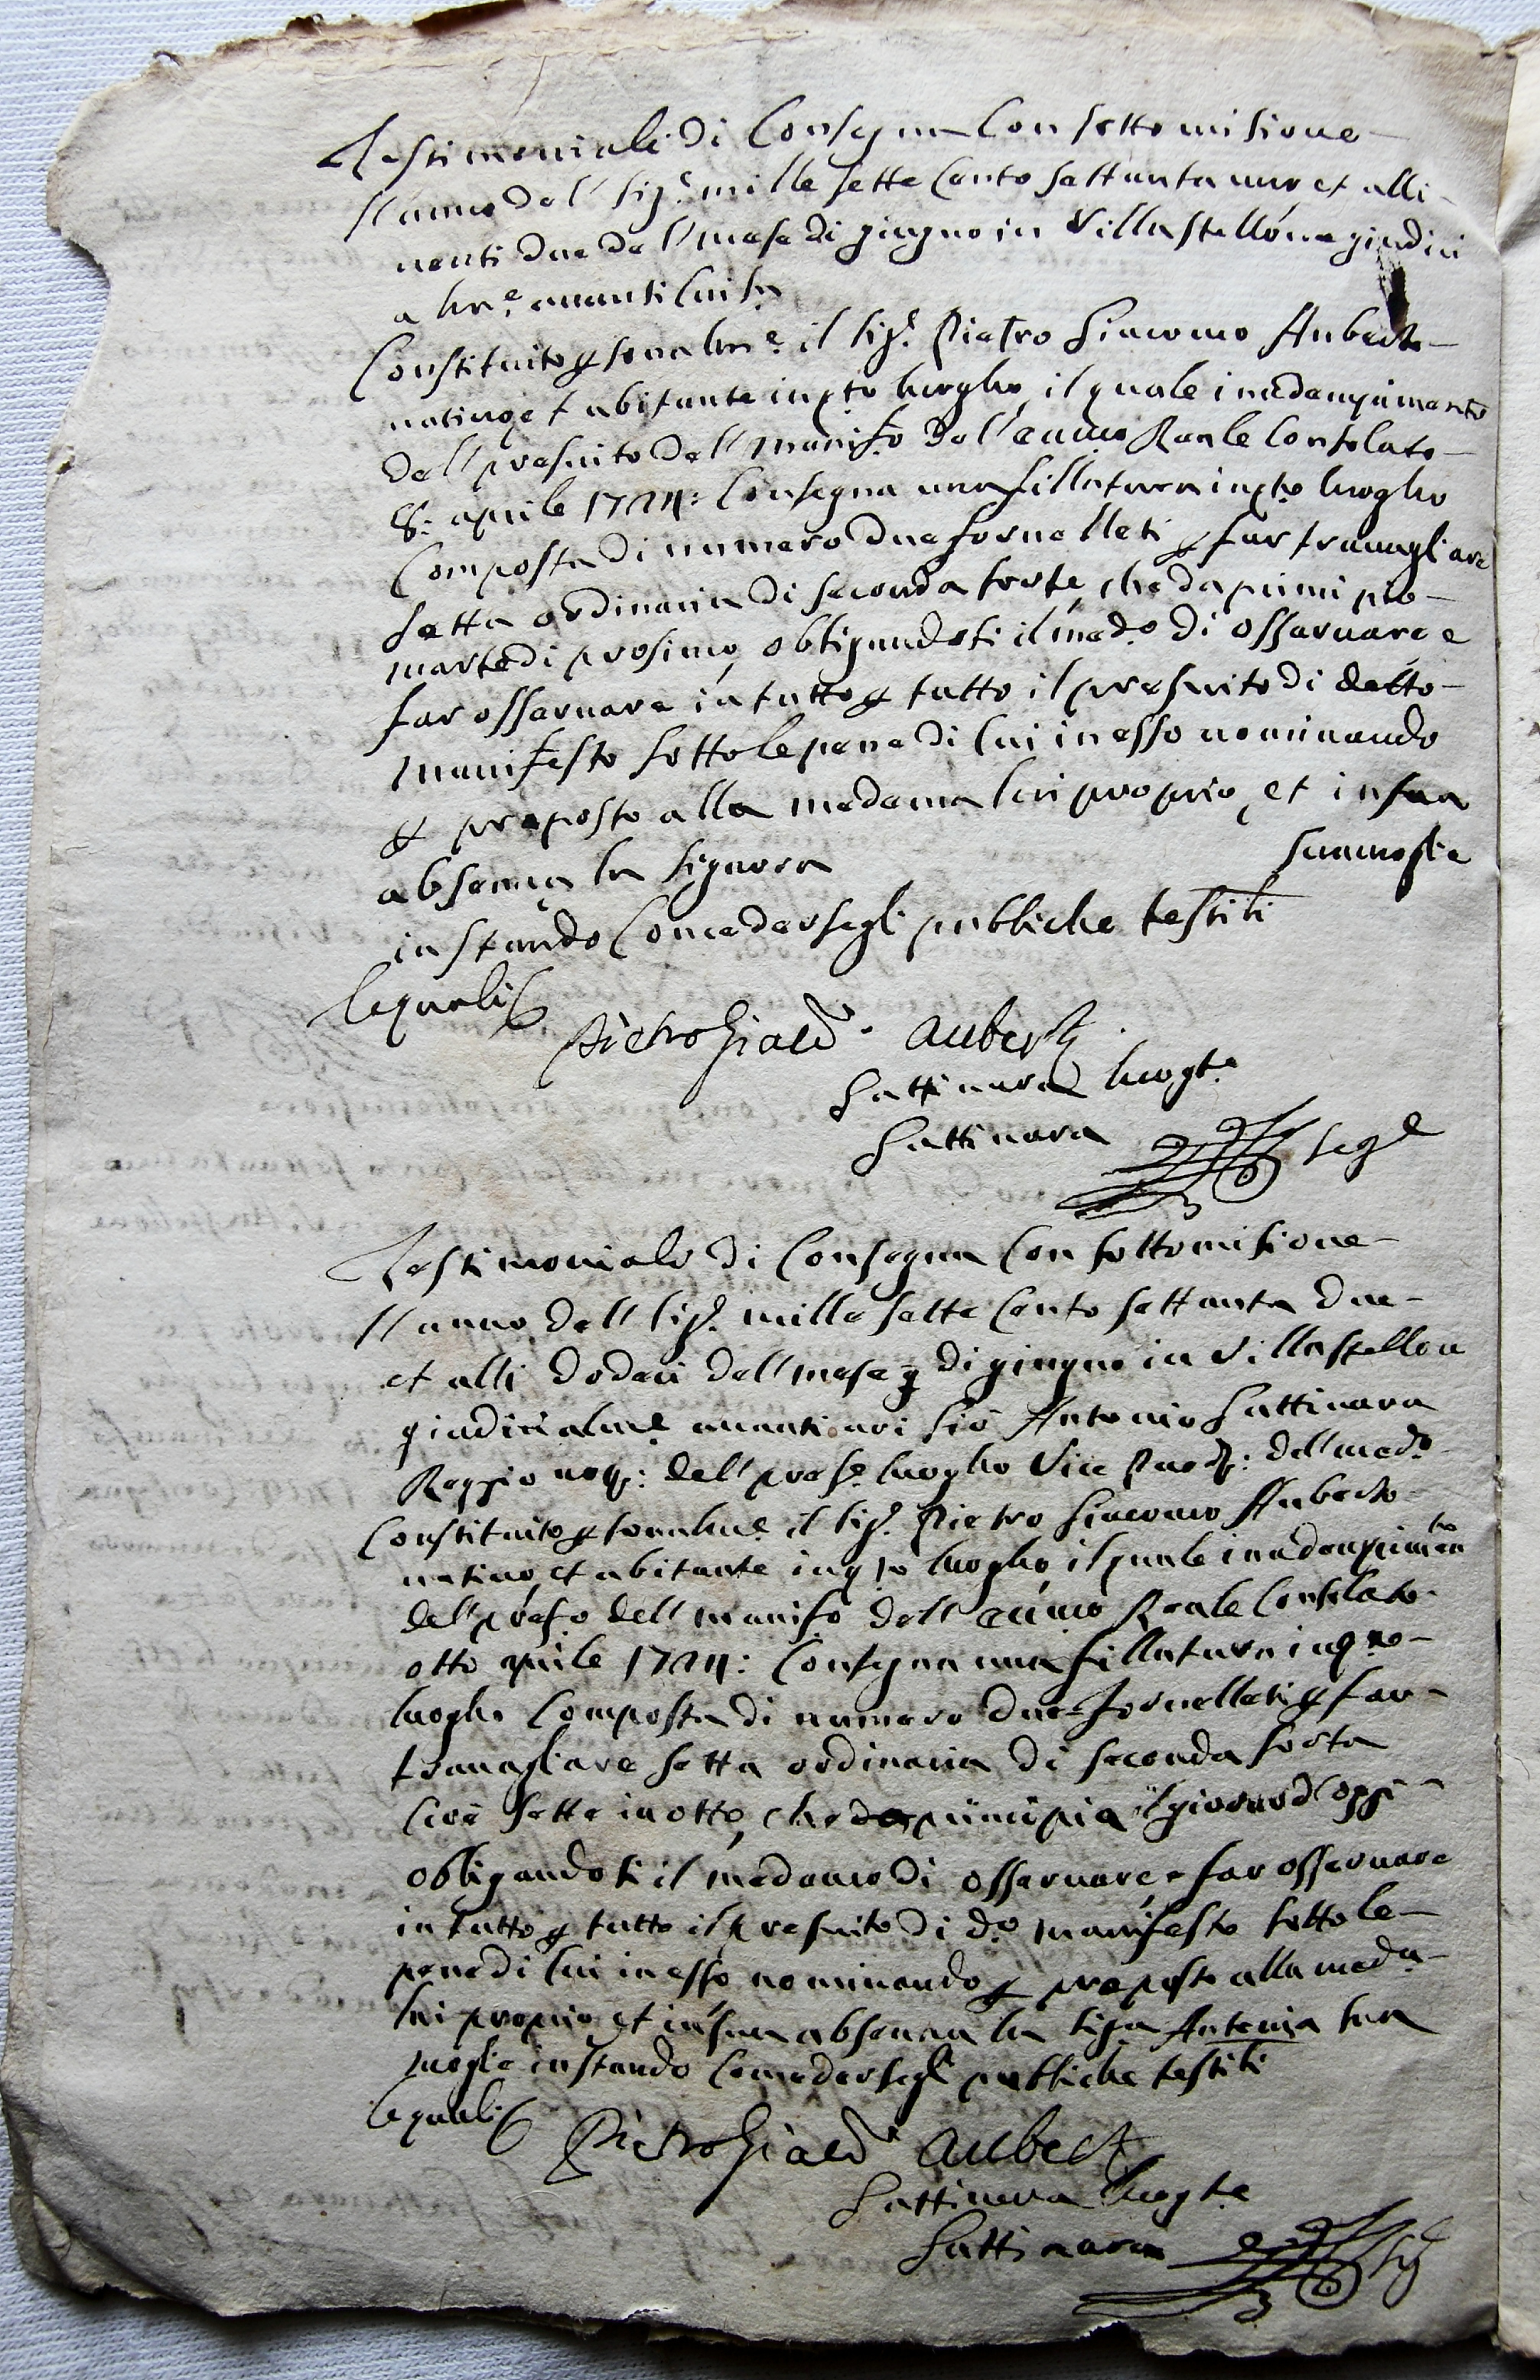 Testimoniali di Consegna Con sottomisione
L'anno del' Sig.e mille sette Cento settanta uno et alli
venti due del' mese di giugno in Villastellone giudici
a lm.e avanti Cui sa
Constituito p sonalm.e il Sig.r Pietro Giacomo Auberto
nativo et abitante in q.to luogho, il quale in adempimento
del' prescrito dell' manif.o dell' eccmo Reale Consolato
8: aprile 1724: Consegna una fillatura in q.to luogho
Composta di numero due fornelleti p far travagliare
setta ordinaria di seconda sorte, che da principio
martedi prosimo, obligandosi il med.o di osservare e
far osservare in tutto p tutto il prescrito di detto
manifesto sotto le pene di Cui in esso nominando
p preposto alla medema lui proprio, et in sua
absenza la Signora sua moglie
instando Concedersegli publiche testi.li
le quali
Pietro Giac.o Aubert
Gattinara luogt.e
Gattinara Seg.o
Testimoniali di Consegna Con sottomisione
L'anno dell Sig.r mille sette Cento settanta due
et alli dodeci dell mese di giugno in Villastellon
giudicialm.e avanti noi Sig.r Antonio Gattinara
Reggio not.: dell' pres.e luogho Vice : dell med.o
Constituito p sonalm.e il Sig.r Pietro Giacomo Auberto
nativo, et abitante in q.to luogho, il quale in adempimento
del' pres.o dell manif.o dell' eccmo Reale Consolato
otto aprile 1724: Consegna una fillatura in q.to
luogho Composta di numero due fornelleti p far
travagliare setta ordinaria di seconda sorta
Cioè sette in otto, che da principia il giorno d'oggi
obligandosi il medemo di osservare, e far osservare
in tutto p tutto il prescrito di d.o manifesto sotto le
pene di Cui in esso nominando p preposto alla med.a
lui proprio, et in sua absenza la Sig.a Antonia sua
moglie instando Concedersegli publiche testi.li
le quali
Pietro Giac.o Aubert
Gattinara luogt.e
Gattinara Seg.o